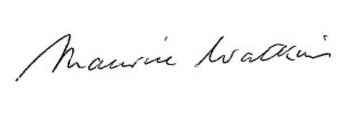 Maurice Watkins